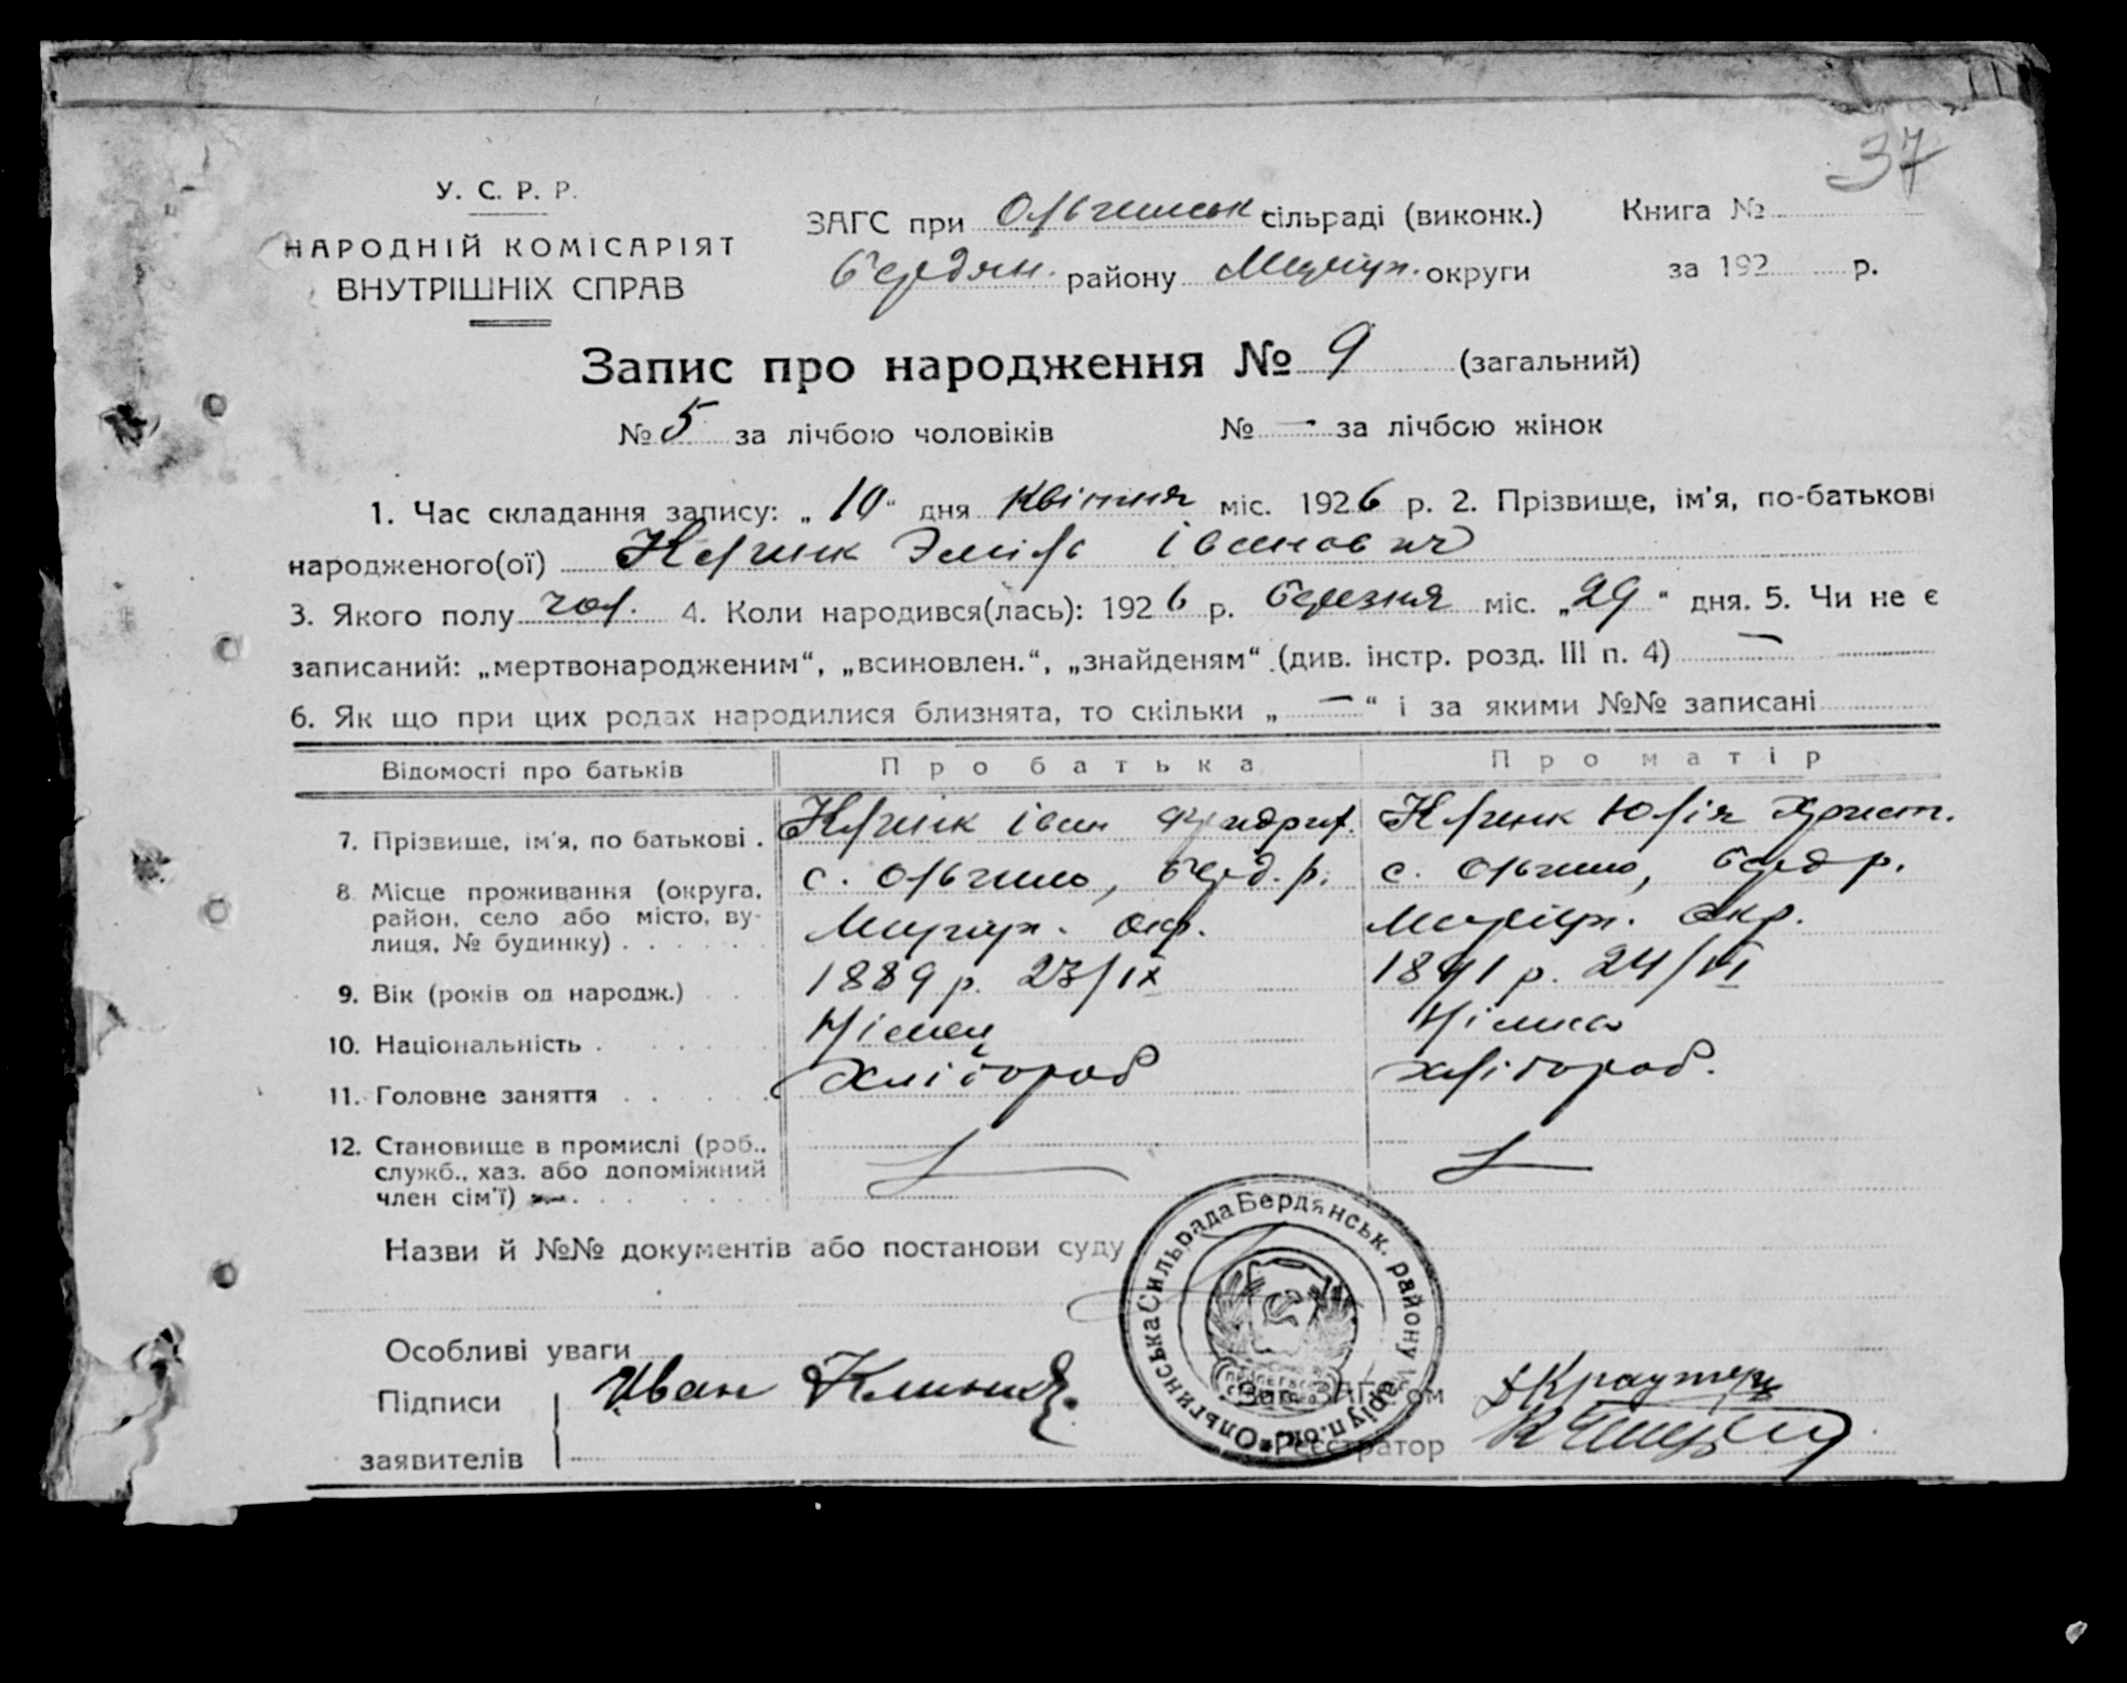 37
У. С. Р. Р.
НАРОДНІЙ КОМІСАРІЯТ
ВНУТРІШНІХ СПРАВ
ЗАГС при Ольгинськ сільраді (виконк.) Книга №
Бердян. району Маріуп. округи за 192 р.
Запис про народження № 9 (загальний)
№ 5 за лічбою чоловіків № — за лічбою жінок
1. Час складання запису: „ 10 “ дня Квітня міс. 1926 р. 2. Прізвище, ім'я, по-батькові
народженого(ої) Клинк Эміль Іванович
3. Якого полу чол. 4. Коли народився(лась): 1926 р. березня міс. „29“ дня. 5. Чи не є
записаний: „мертвонародженим“, „всиновлен.“, „знайденям“ (див. інстр. розд. III п. 4) —
6. Як що при цих родах народилися близнята, то скільки „ — “ і за якими №№ записані
Відомості про батьків Про батька Про матір
7. Прізвище, ім'я, по батькові . Клинк Іван Фридрих. Клинк Юлія Христ.
8. Місце проживання (округа, с. Ольгино, Берд. р. с. Ольгино, Берд р.
район, село або місто, ву-
лиця, № будинку) . . . . . . Маріуп. окр. Маріуп. окр.
9. Вік (років од народж.) 1889 р. 23/IX 1891 р. 24/VI
10. Національність . Німец Німка
11. Головне заняття Хлібороб хлібороб.
12. Становище в промислі (роб.,
служб., хаз. або допоміжний
член сім'ї)
Назви й №№ документів або постанови суду
Особливі уваги
Підписи Иван Клинк Зав. ЗАГС'ом Краутер
заявителів Реєстратор
Ольгинська Сильрада Бердянськ. району Маріуп. окр.